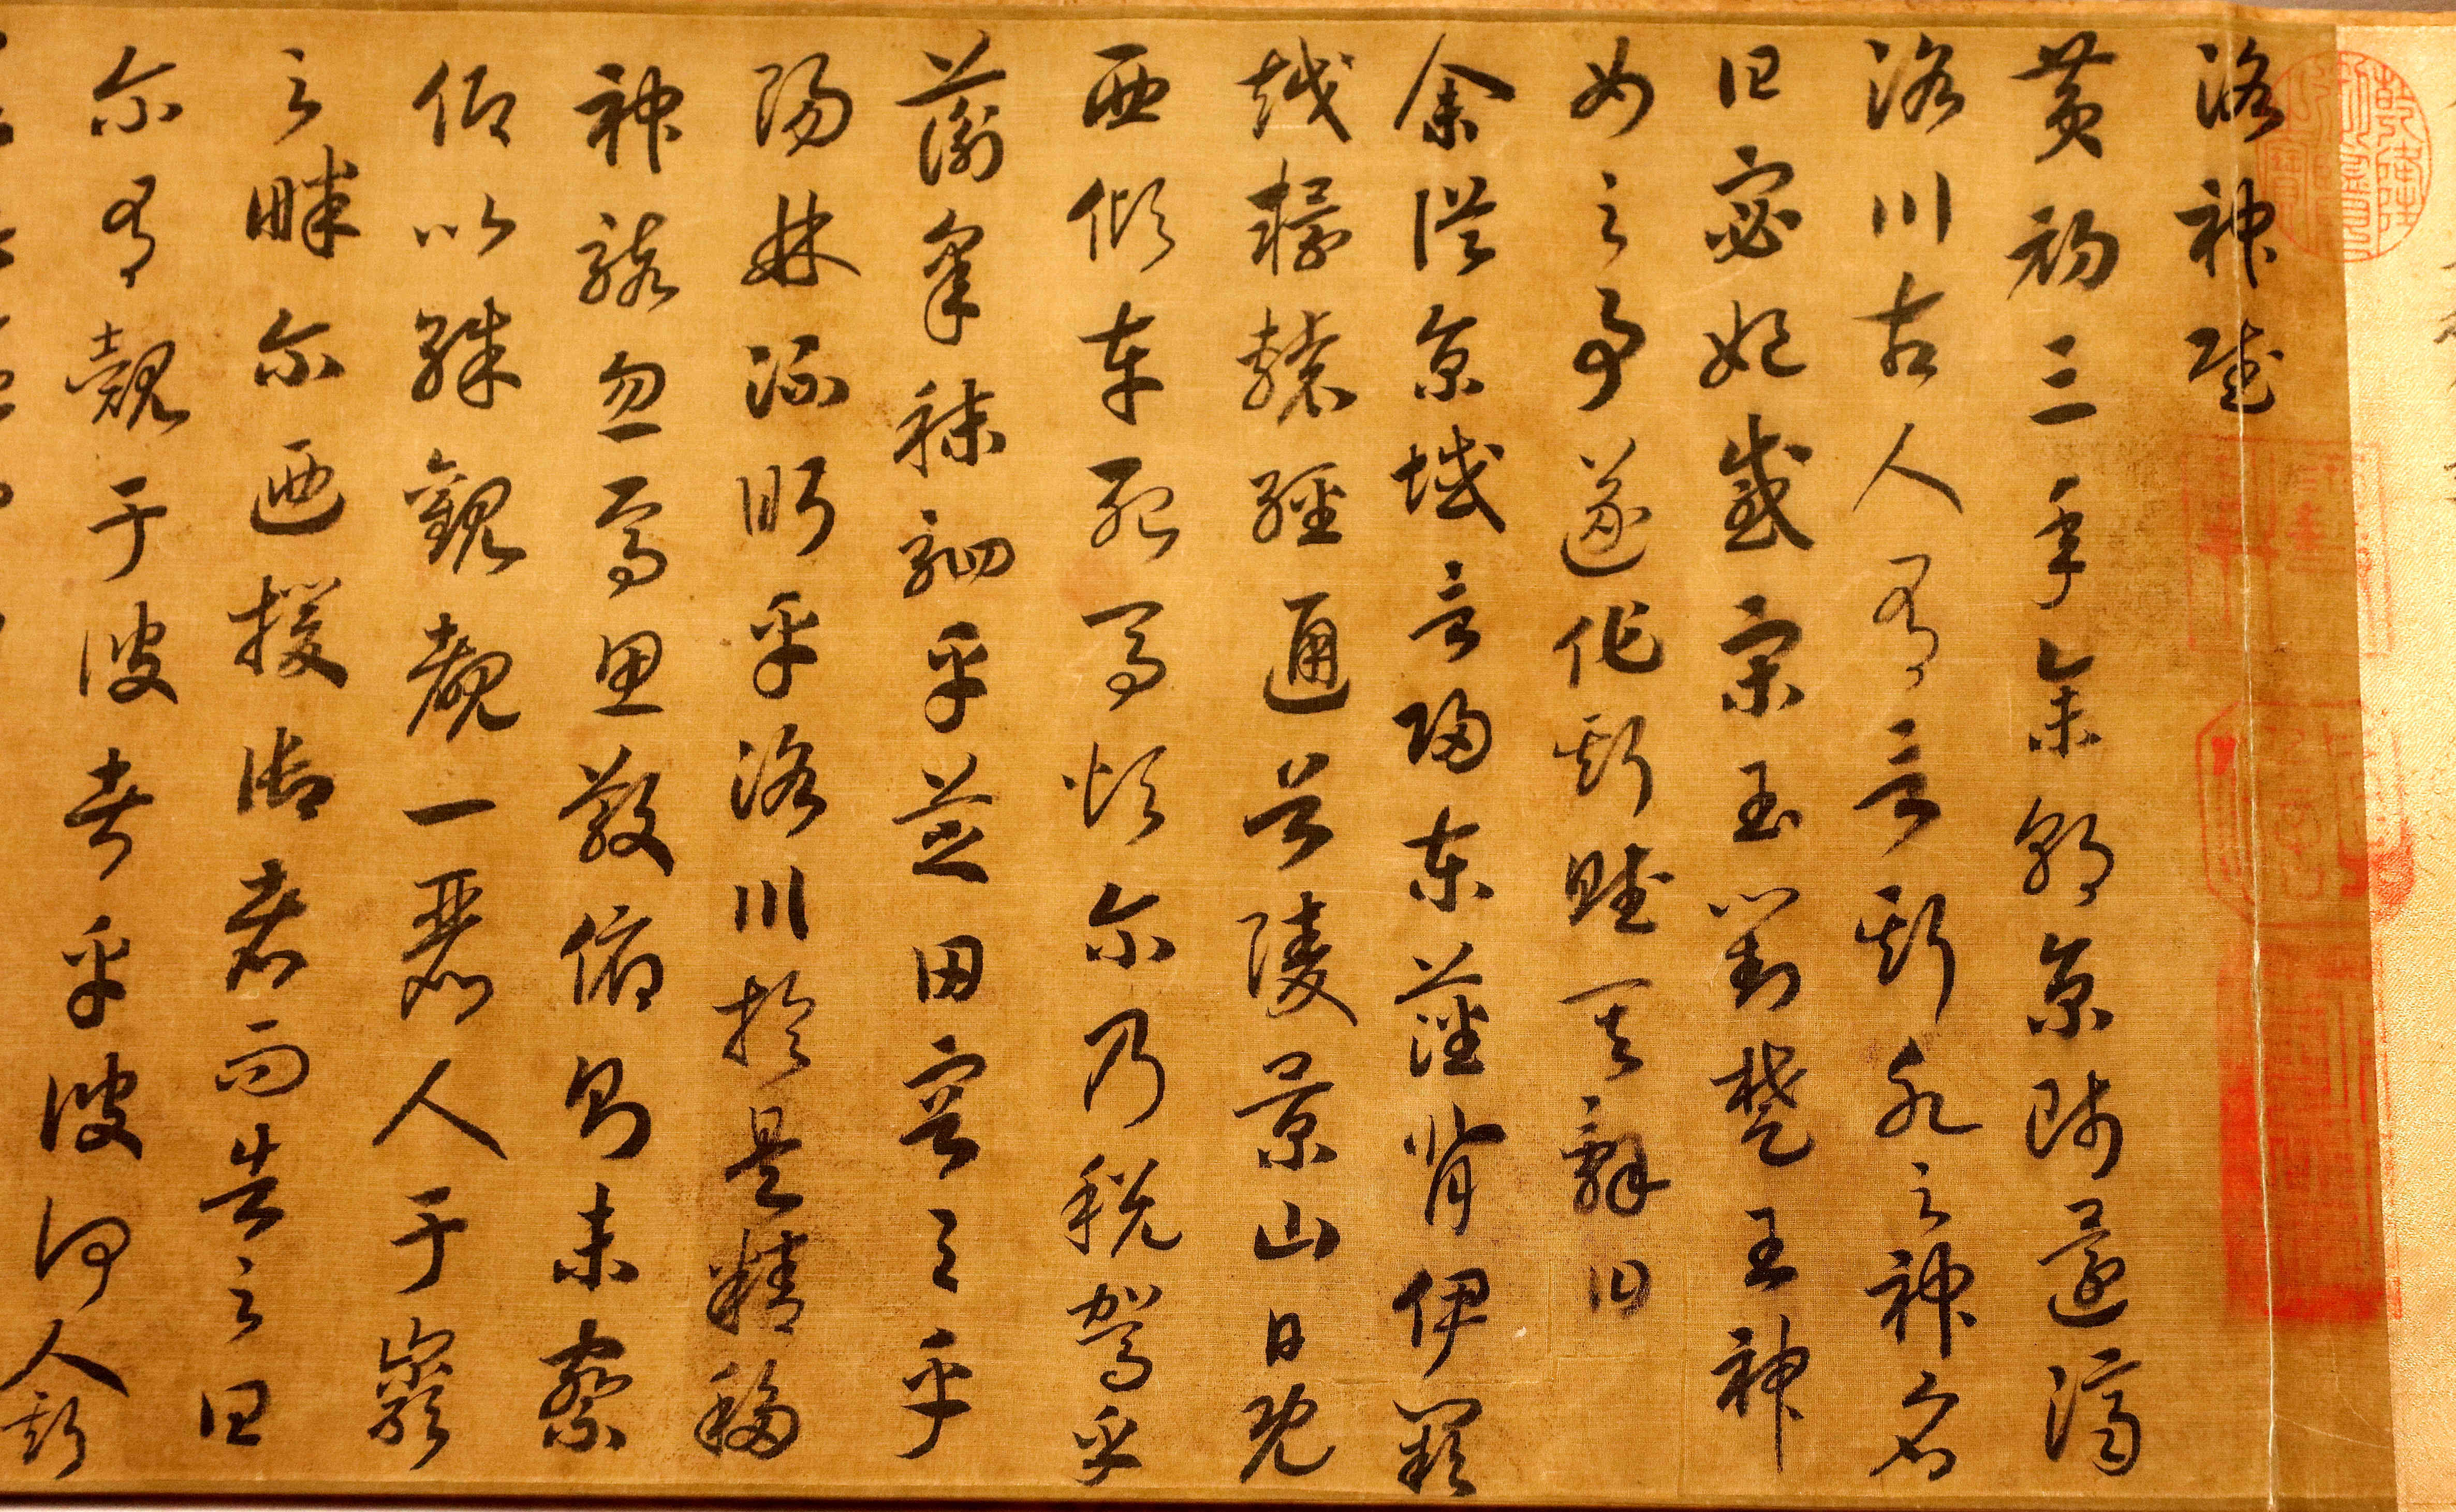 洛神賦
黄初三年余朝京師還濟
洛川古人有言斯水之神名
曰宓妃感宋玉對楚王神
女之事遂作斯賦其辭曰
余從京域言歸東藩背伊闕
越轘轅經通谷陵景山日既
西傾車殆馬煩尔乃税駕乎
蘅皋秣駟乎芝田容與乎
陽林流眄乎洛川於是精移
神駭忽焉思散俯則未察
仰以殊觀覩一麗人于巖
之畔尔迺援御者而告之曰
尔有覿于彼者乎彼何人斯